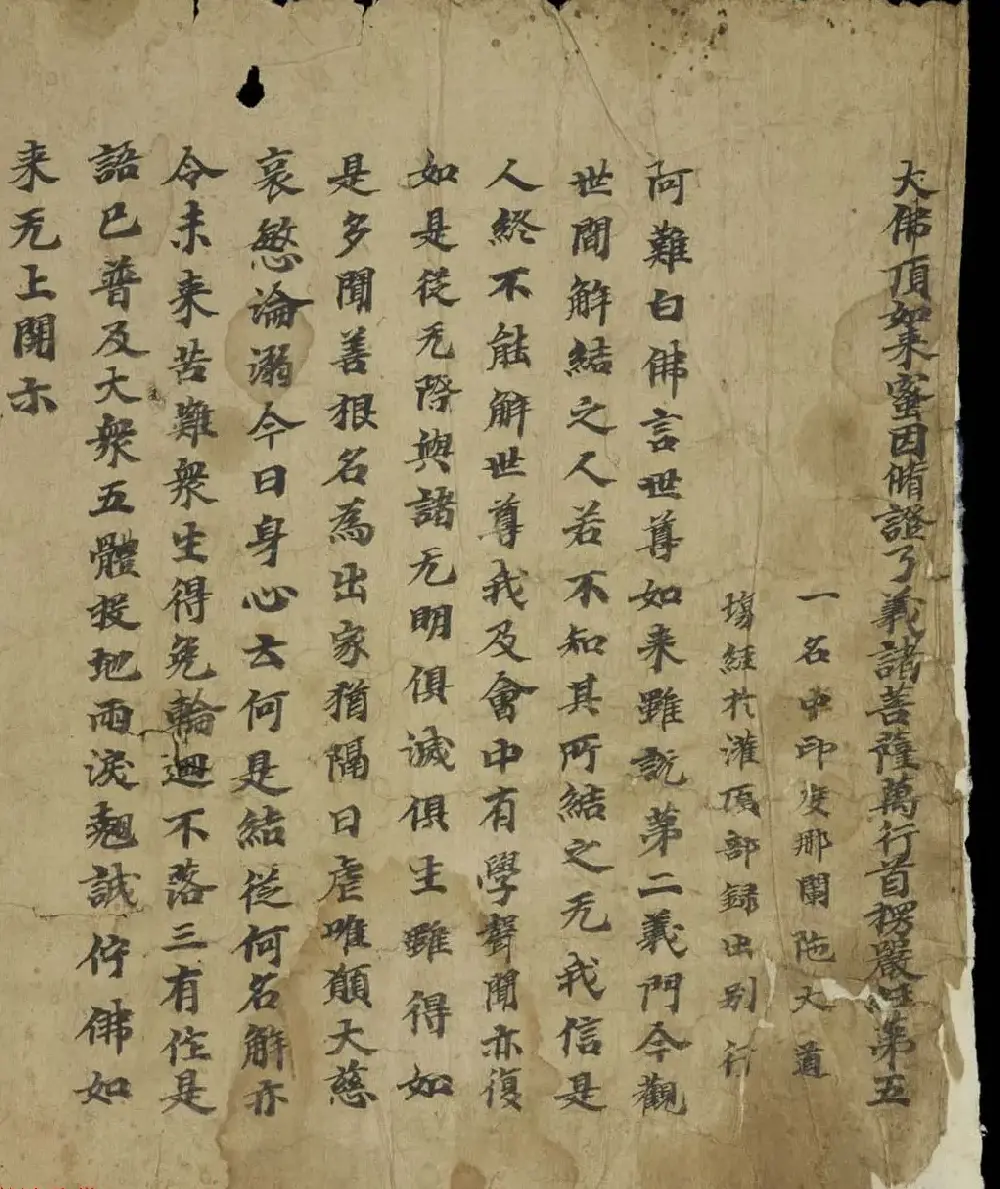 大佛頂如来蜜因脩證了義諸菩薩萬行首楞嚴經第五
一名中印度那闌陁大道
塲経扵灌頂部録出别行
阿難白佛言世尊如来雖説第二義門今觀
世間解結之人若不知其所結之无我信是
人終不能解世尊我及會中有學聲聞亦復
如是従无際與諸无明俱滅俱生雖得如
是多聞善根名為出家猶隔日虐唯願大慈
哀愍淪溺今日身心云何是結従何名解亦
令未来苦難衆生得免輪迴不落三有作是
語已普及大衆五體投地雨淚翹誠佇佛如
来无上開示